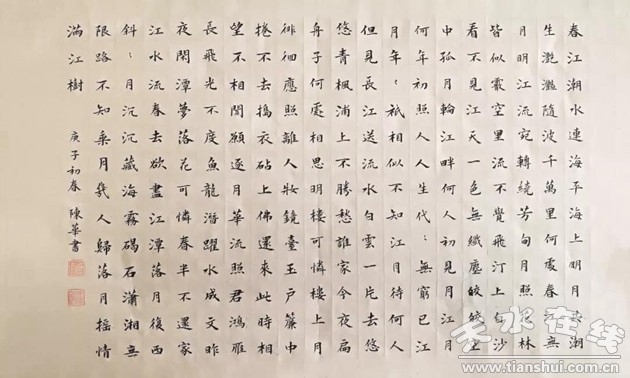 春江潮水連海平海上明月共潮
生灩灩隨波千萬里何處春江無
月明江流宛轉繞芳甸月照花林
皆似霰空里流不覺飛汀上白沙
看不見江天一色無纖塵皎皎空
中孤月輪江畔何人初見月江月
何年初照人人生代〻無窮已江
月年〻祇相似不知江月待何人
但見長江送流水白雲一片去悠
悠青楓浦上不勝愁誰家今夜扁
舟子何處相思明樓可憐樓上月
徘徊應照離人妝鏡臺玉戶簾中
捲不去搗衣砧上拂還來此時相
望不相聞願逐月華流照君鴻雁
長飛光不度魚龍潛躍水成文昨
夜閑潭夢落花可憐春半不還家
江水流春去欲盡江潭落月復西
斜〻月沉沉藏海霧碣石瀟湘無
限路不知乘月幾人歸落月搖情
滿江樹 庚子初春 陳華書
天水在线
www.tianshui.com.cn